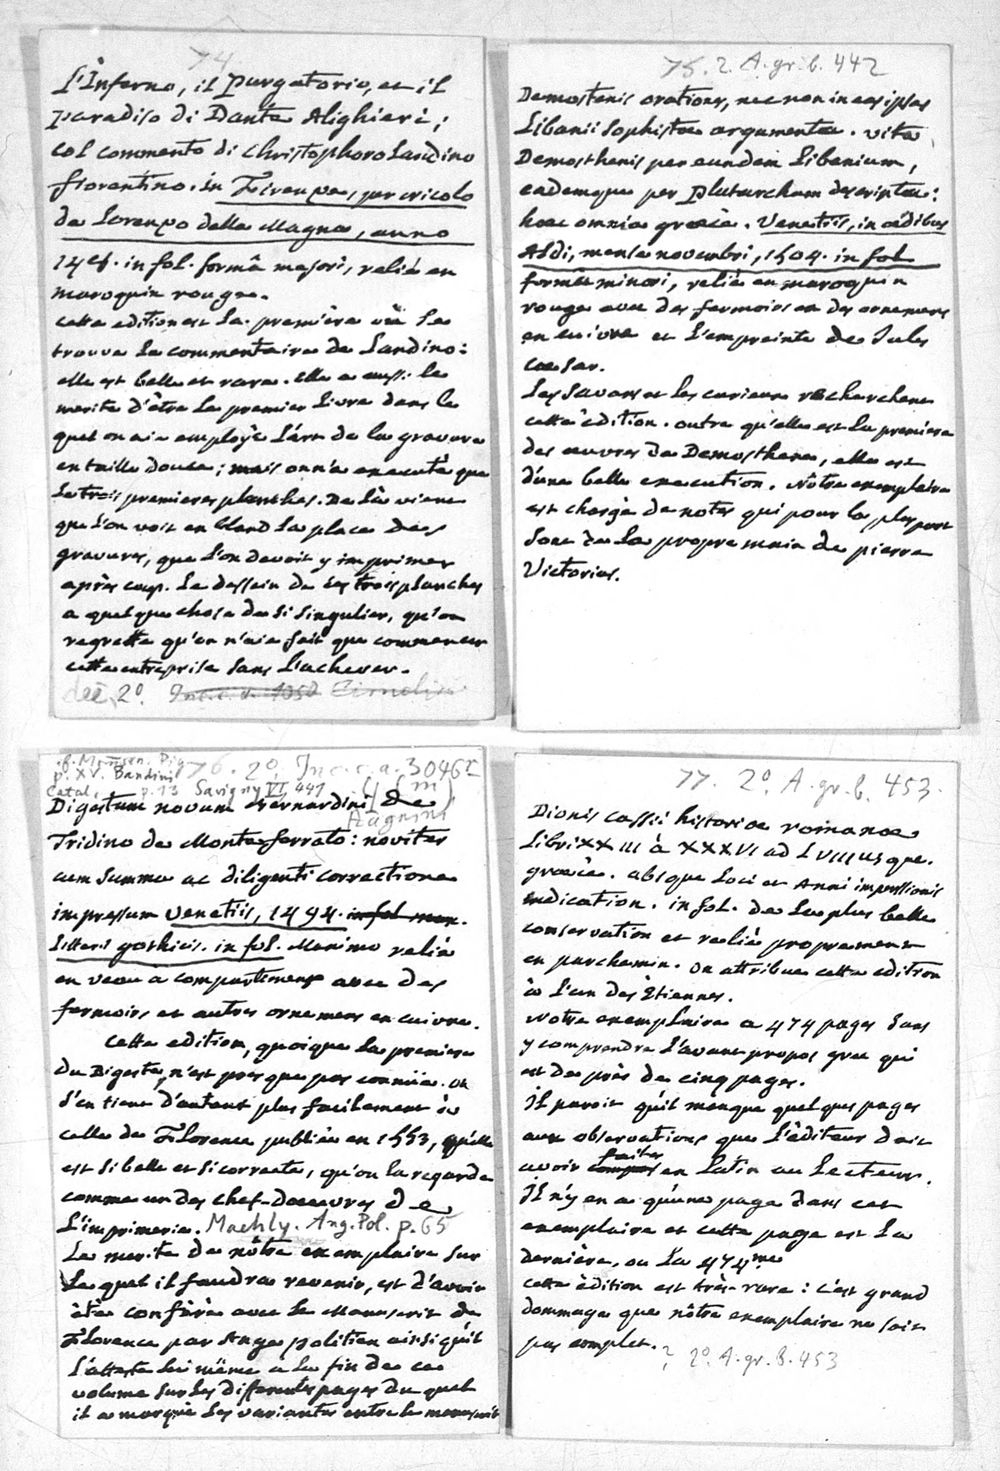 74
L'Inferno, il Purgatorio, et il
paradiso di Dante Alighieri;
col commento di Christophoro Landino
fiorentino. in Firenze, per nicolo
de Lorenzo della Magna, anno
1481. in fol. formâ majori, relié en
maroquin rouge.
cette edition est la première où se
trouve le commentaire de Landino:
elle est belle et rare. Elle a aussi le
merite d'être le premier livre dans le
quel on aie employè l'art de la gravure
en taille douce; mais on n'a executé que
les trois premieres planches. De là vient
que l'on voit en bland la place des
gravures, que l'on devoit y imprimer
après coup. Le dessein de ses trois planches
a quelque chose de si singulier, qu'on
regrette qu'on n'aie fait que commencer
cette entreprise sans l'achever.
2º Inc. c. a. 1058 Cimelien
75. 2 A. gr. b. 442
Demostenis orationes, nec non in eas ipsas
Libanii Sophistae argumenta. vita
Demosthenis per eundem Libanium,
eademque per plutarchum descripta:
haec omnia graecè. Venetiis, in aedibus
Aldi, mense novembri, 1504. in fol
formâ minori, relié en maroquin
rouge avec des fermoirs et des ornemens
en cuivre et l'empreinte de Jules
caesar.
Les Savans et les curieux recherchent
cette èdition. outre qu'elle est la premiere
des œuvres de Demosthene, elle est
d'une belle execution. Notre exemplaire
est chargè de notes qui pour la plus part
sont de la propre main de pierre
Victorius.
p. XV. Bandini
Catal. p. 13 Savigny VI 441
76. 2º Inc. c. a. 3046
Digestum novum Bernardini (de
Tridino de Monteferrato: noviter
cum summa ac diligenti correctione
impressum Venetiis, 1494. in fol. max.
Litteris gothicis. in fol. Maximo relié
en veau a compartimens avec des
fermoirs et autres ornemens en cuivre.
Cette edition, quoique la premiere
du Digeste, n'est presque pas connüe. on
s'en tient d'autant plus facilement à
celle de Florence publiée en 1553, qu'elle
est si belle et si correcte, qu'on la regarde
comme un des chef-doeuvres de
L'imprimerie. Maehly. Ang. Pol. p. 65
Le merite de nôtre exemplaire sur
le quel il faudra revenir, est d'avoir
ètè confèrè avec le Manuscrit de
Florence par Ange politien ainsi qu'il
l'atteste lui même a la fin de ce
volume sur les differentes pages du quel
il a marquè les variantes entre le manuscrit
77. 2º. A. gr. b. 453.
Dionis Cassii historiae romanae
Libri XXIII à XXXVI ad LVIII usque.
graecè. absque Loci et Anni impressionis
indication. in fol. de la plus belle
conservation et reliè proprement
en parchemin. On attribue cette edition
à l'un des Etiennes.
Notre exemplaire a 474 pages sans
y comprendre l'avant propos grec qui
est de près de cinq pages.
Il paroit qu'il manque quelques pages
aux observations que l'èditeur doit
avoir faites en Latin au Lecteur.
Il n'y en a qu'une page dans cet
exemplaire et cette page est la
dernière, ou la 474me
cette èdition est très-rare: c'est grand
dommage que nôtre exemplaire ne soit
pas complet. ? 2º. A. gr. b. 453